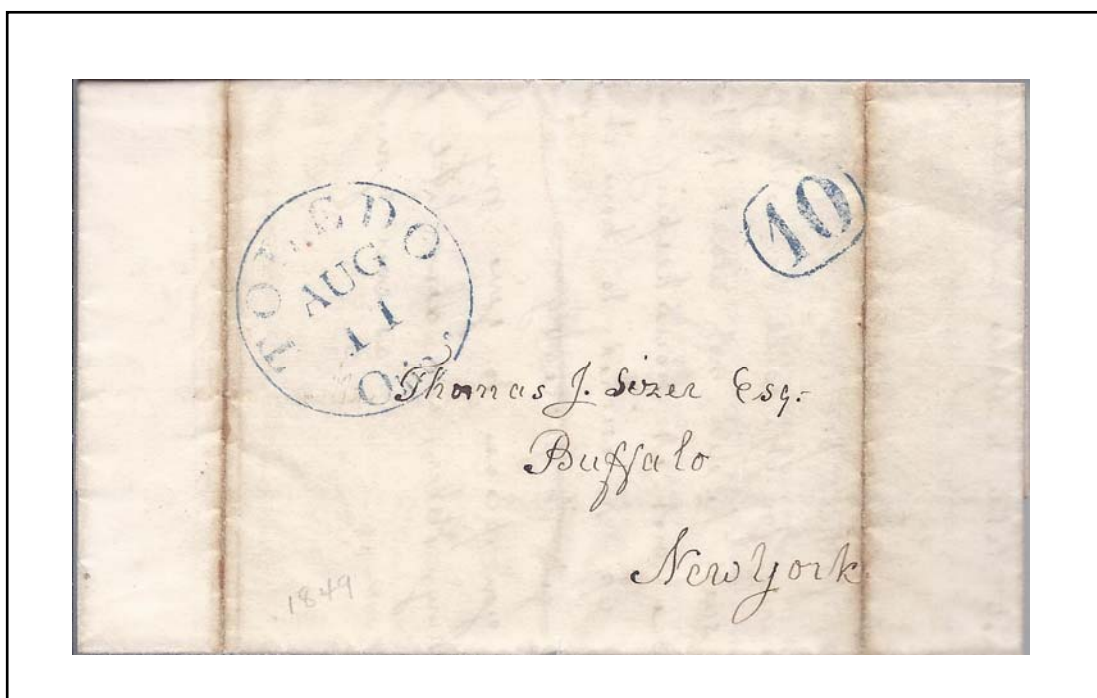 TOLEDO
AUG
11
Ohio
10
Thomas J. Sizer Esq.
Buffalo
New York
1849